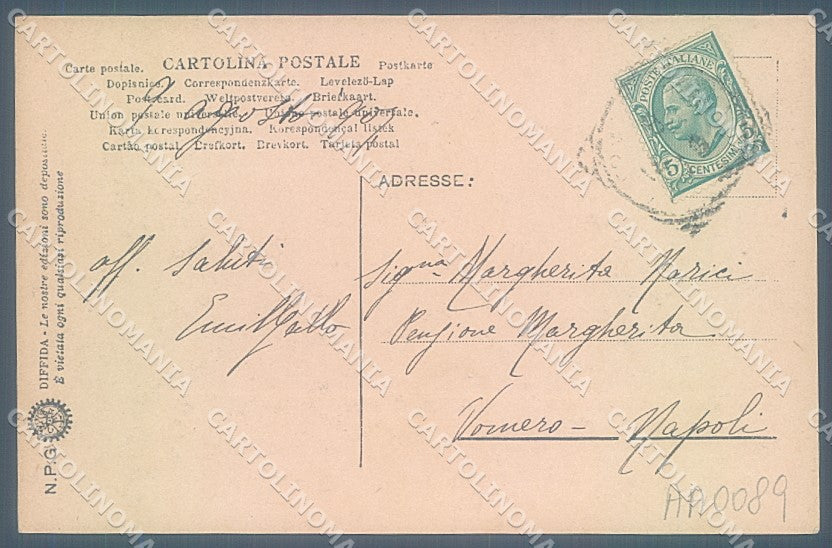 Carte postale. CARTOLINA POSTALE Postkarte
Dopisnice. Correspondenzkarte. Levelező-Lap
Postcard. Weltpostverein. Briefkaart.
Union postale universelle. Unione postale universale.
Karta korespondencyjna. Korespondenčni listek
Cartão postal. Brefkort. Brevkort. Tarjeta postal
7 agosto
POSTE ITALIANE
5
CENTESIMI
5
ADRESSE:
aff. saluti
Signa Margherita Marici
Pensione Margherita
Vomero - Napoli
DIFFIDA - Le nostre edizioni sono depositate.
È vietata ogni qualsiasi riproduzione
N.P.G.
AP.0089
CARTOLINOMANIA